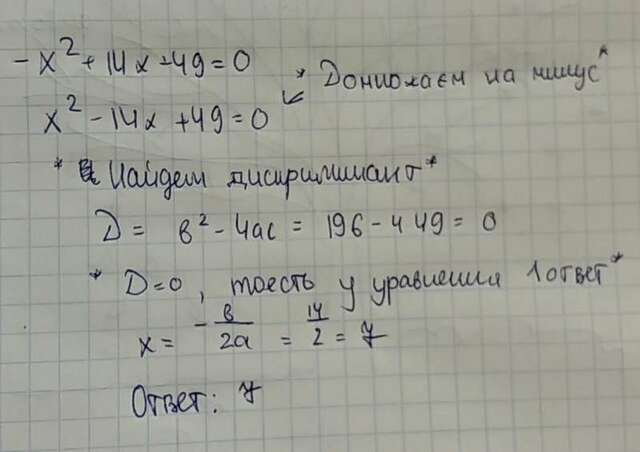 -x² + 14x - 49 = 0
* Домножаем на минус*
x² - 14x + 49 = 0
* Найдем дискриминант*
D = в² - 4ac = 196 - 4 49 = 0
* D=0, тоесть у уравнения 1 ответ*
x = -в/2a = 14/2 = 7
Ответ: 7